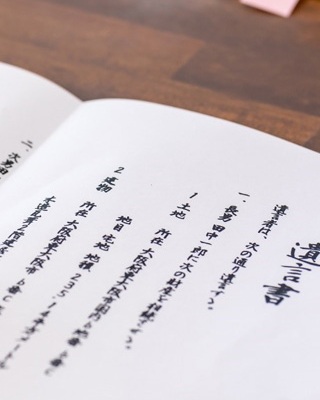 遺言書
遺言者は、次の通り遺言する。
一、長男 田中一郎に次の財産を相続する。
1 土地
所在 大阪府東大阪市
地目 宅地 地積 235.
2 建物
所在 大阪府東大阪市
木造瓦葺2階建
二、次男